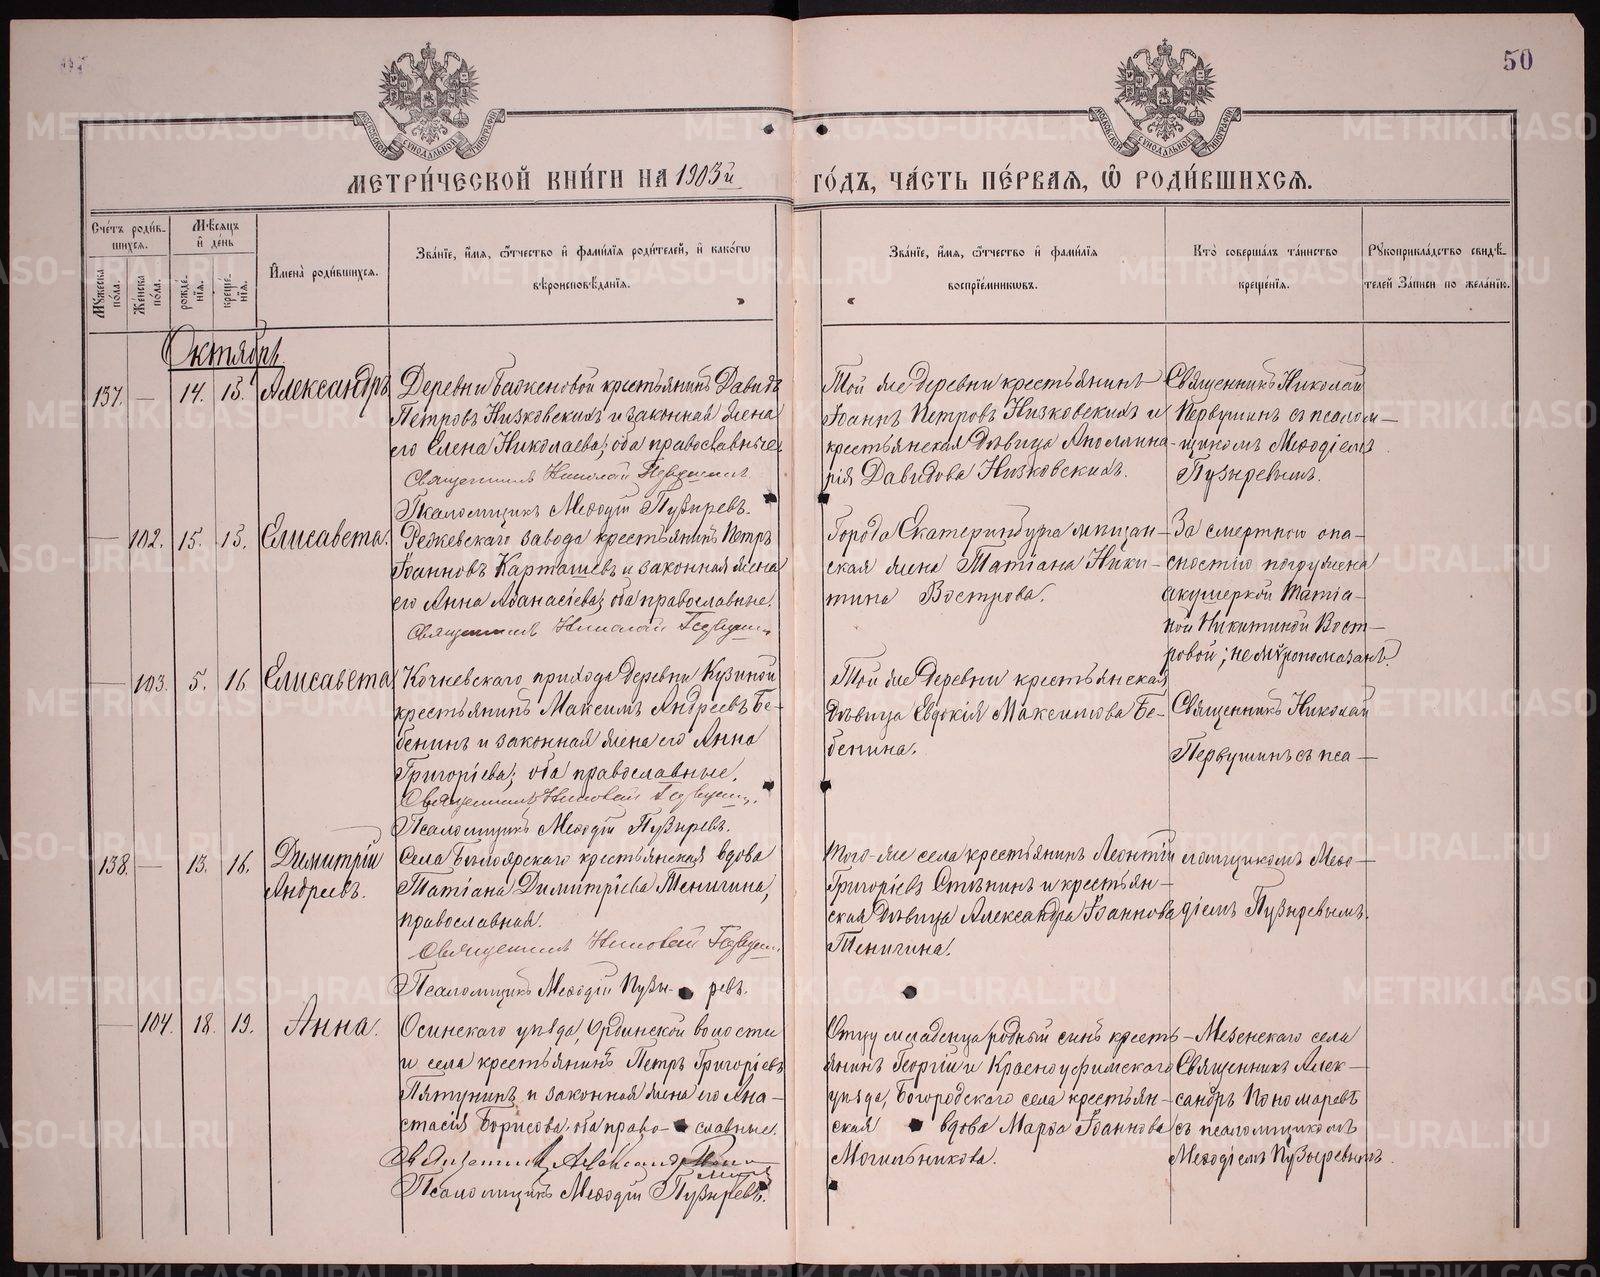 50
МОСКОВСКОЙ СѴНОДАЛЬНОЙ ТИПОГРАФІИ
МОСКОВСКОЙ СѴНОДАЛЬНОЙ ТИПОГРАФІИ
МЕТРИ́ЧЕСКОЙ КНИ́ГИ НА 1903й ГО́ДЪ, ЧА́СТЬ ПЕ́РВАѦ, Ѡ҆ РОДИ́ВШИХСѦ.
Сче́тъ роди́вшихся.
Мѣ́сяцъ и҆ де́нь
И҆мена̀ роди́вшихся.
Зва́нїе, и҆́мя, ѻ҆́тчество и҆ фами́лїя роди́телей, и҆ како́гѡ вѣроисповѣ́данїя.
Зва́нїе, и҆́мя, ѻ҆́тчество и҆ фами́лїя воспрїе́мникѡвъ.
Кто̀ соверша́лъ та́инство креще́нїя.
Рꙋкоприкла́дство свидѣ́телей За́писи по жела́нїю.
Мꙋ́жеска по́ла.
Же́нска по́ла.
рожде́нїя.
креще́нїя.
Октябрь
137. — 14. 15. Александръ
Деревни Баженовой крестьянинъ Давидъ
Петровъ Низковскихъ и законная жена
его Елена Николаева; оба православные.
Священникъ Николай Первушинъ.
Псаломщикъ Меѳодій Пузыревъ.
Той же деревни крестьянинъ
Іоаннъ Петровъ Низковскихъ и
крестьянская дѣвица Аполлина-
рія Давидова Низковскихъ.
Священникъ Николай
Первушинъ съ псалом-
щикомъ Меѳодіемъ
Пузыревымъ.
— 102. 15. 15. Елисавета.
Режевскаго завода крестьянинъ Петръ
Іоанновъ Карташевъ и законная жена
его Анна Аѳанасіева; оба православные.
Священникъ Николай Первушинъ
Города Екатеринбурга мѣщан-
ская жена Татіана Ники-
тина Вострова.
За смертною опа-
сностію погружена
акушеркой Татіа-
ной Никитиной Вост-
ровой; не мѵропомазана.
— 103. 5. 16. Елисавета
Кочневскаго прихода деревни Кузиной
крестьянинъ Максимъ Андреевъ Бе-
бенинъ и законная жена его Анна
Григоріева; оба православные.
Священникъ Николай Первушинъ.
Псаломщикъ Меѳодій Пузыревъ.
Той же деревни крестьянская
дѣвица Евдокія Максимова Бе-
бенина.
Священникъ Николай
Первушинъ съ пса-
138. — 13. 16. Димитрій
Андреевъ.
Села Бѣлоярскаго крестьянская вдова
Татіана Димитріева Теничина,
православная.
Священникъ Николай Первушинъ.
Псаломщикъ Меѳодій Пузыревъ.
Того-же села крестьянинъ Леонтій
Григоріевъ Стѣнинъ и крестьян-
ская дѣвица Александра Іоаннова
Теничина.
ломщикомъ Меѳо-
діемъ Пузыревымъ.
— 104. 18. 19. Анна.
Осинскаго уѣзда, Ординской волости
и села крестьянинъ Петръ Григоріевъ
Пятунинъ и законная жена его Ана-
стасія Борисова; оба православные.
Священникъ Александръ Пономаревъ
Псаломщикъ Меѳодій Пузыревъ.
Отцу младенца родный сынъ кресть-
янинъ Георгій и Красноуфимскаго
уѣзда, Богородскаго села крестьян-
ская вдова Марѳа Іоаннова
Могильникова.
Мезенскаго села
Священникъ Алек-
сандръ Пономаревъ
съ псаломщикомъ
Меѳодіемъ Пузыревымъ.
METRIKI.GASO-URAL.RU